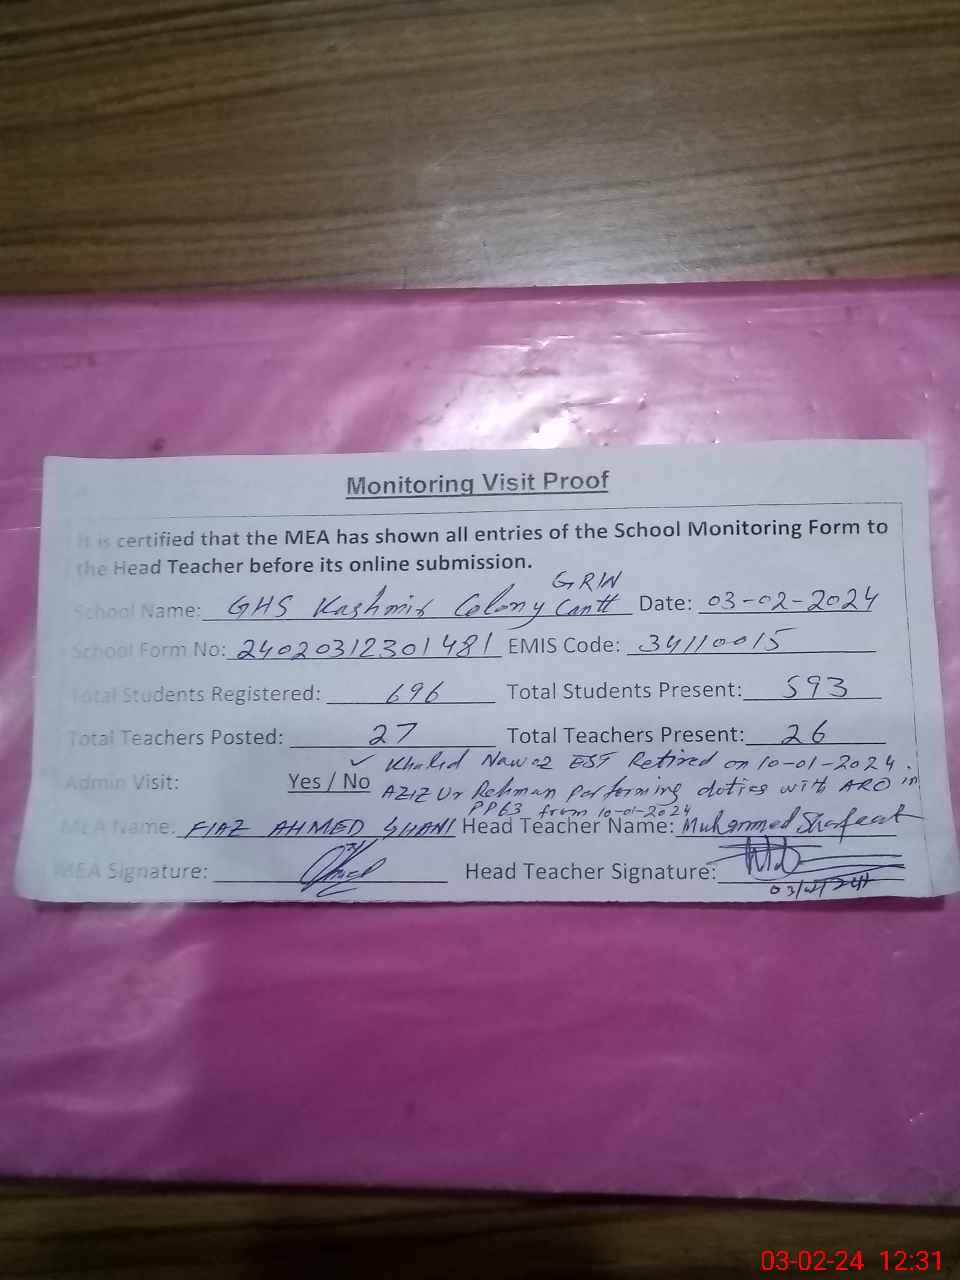 Monitoring Visit Proof
It is certified that the MEA has shown all entries of the School Monitoring Form to
the Head Teacher before its online submission.
School Name: GHS Kashmir Colony Cantt GRW Date: 03-02-2024
School Form No: 24020312301481 EMIS Code: 34110015
Total Students Registered: 696 Total Students Present: 593
Total Teachers Posted: 27 Total Teachers Present: 26
✓ Khalid Nawaz EST Retired on 10-01-2024.
Admin Visit: Yes / No AZIZ Ur Rehman performing duties with ARO in
PP63 from 10-01-2024
MEA Name: FIAZ AHMED GHANI Head Teacher Name: Muhammad Sharfeeat
MEA Signature: Head Teacher Signature:
03-02-24 12:31